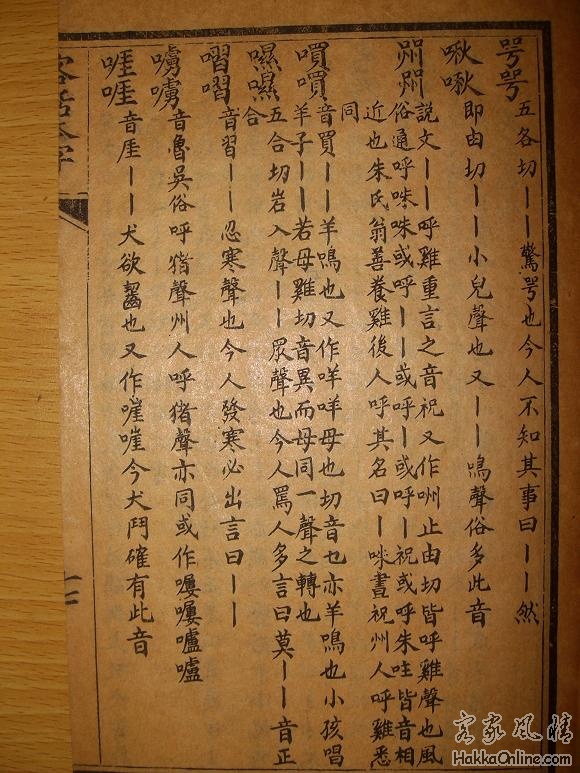 咢咢 五各切丨丨驚咢也今人不知其事曰丨丨然
啾啾 即由切丨丨小兒聲也又丨丨鳴聲俗多此音
說文丨丨呼雞重言之音祝又作喌止由切皆呼雞聲也風
俗通呼咮咮或呼丨丨或呼丨或呼丨祝或呼朱吐皆音相
近也朱氏翁善養雞後人呼其名曰丨咮晝祝州人呼雞悉
同
嘪嘪 音買丨丨羊鳴也又作咩咩母也切音乜亦羊鳴也小孩唱
羊子丨丨若母雞切音異而母同一聲之轉也
㗲㗲 五合切岩入聲丨丨眾聲也今人罵人多言曰莫丨丨音正
合
嗂嗂 音習丨丨忍寒聲也今人發寒必出言曰丨丨
嚕嚕 音魯吳俗呼豬聲州人呼豬聲亦同或作嘍嘍嚧嚧
啀啀 音厓丨丨犬欲齧也又作嘊嘊今犬鬥確有此音
十二
客家風情
HakkaOnline.com